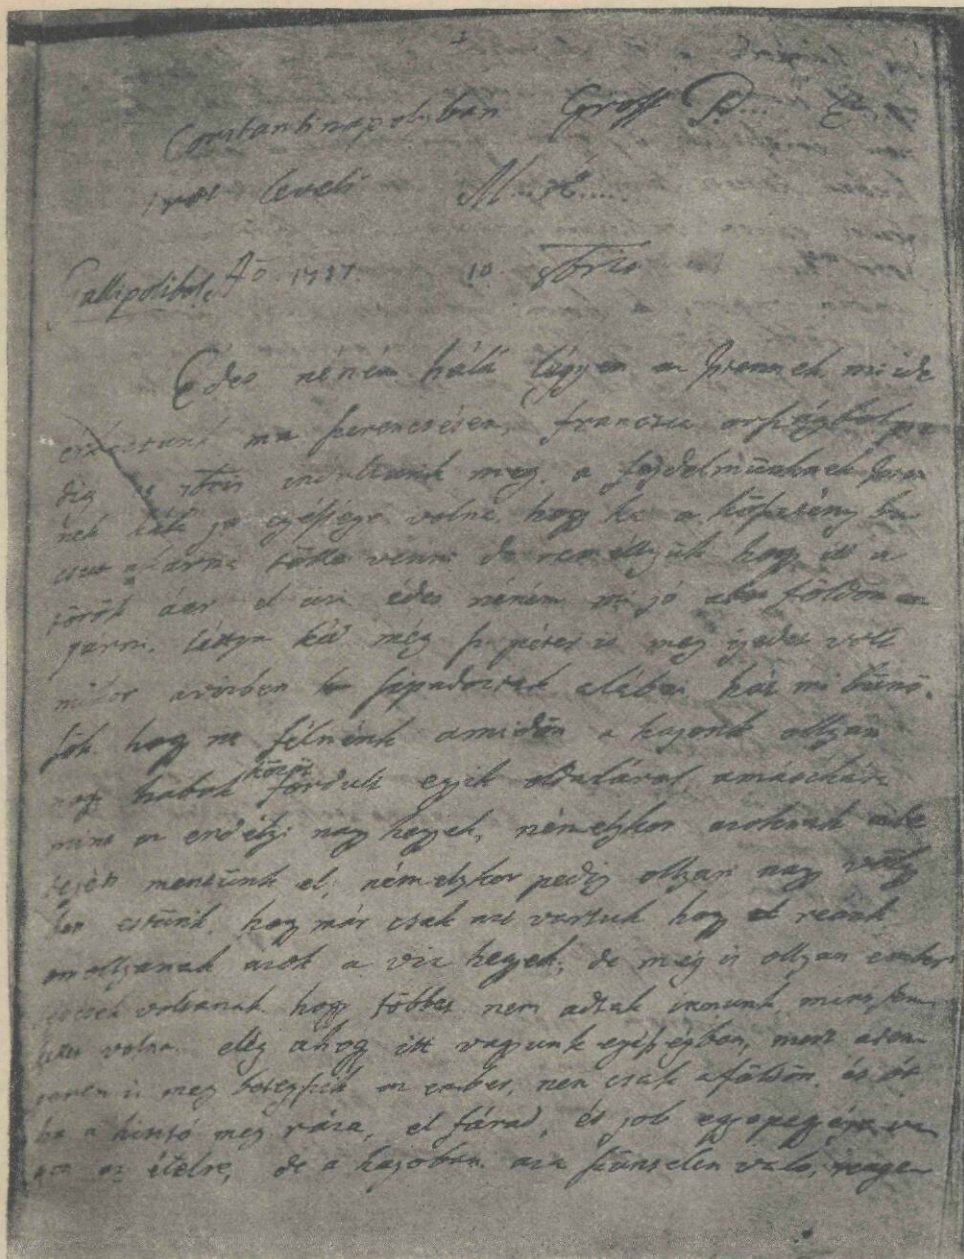 Constantinapolyban Groff P.... E...
irot leveli M... K.....
Gallipolibol, Ao. 1717. 10 8bris
Édes néném hálá légyen az Istennek, mi ide
érkeztünk ma szerencsésen, francia országbol pe
dig 15 7bris indultunk meg. a fejedelmünknek Iste
nek jo egésége volna, hogy ha a köszvény bu
csut akarna tölle venni de reméllyük hogy itt a
török áer el üzi édes néném mi jó a földön
járni. láttya ké, még sz. péter is meg ijedet volt
mikor a vizben sippadoztak a lábai, hát mi bünö,
sök hogy ne félnénk amidön a hajonk ollyan
nagy habok közöt fordult egyik oldaláról a másikára
mint az erdélyi nagy hegyek, némelykor azoknak a te
tején mentünk el, némelykor pedig ollyan nagy völgy
ben estünk, hogy már csak azt vartuk hogy reánk
omollyanak azok a viz hegyek, de még is ollyan ember
ségesek voltanak hogy többet nem adtak innunk, mint sem
kellet volna. elég ahogy itt vagyunk egéségben, mert a ten
geren is meg betegszik az ember, nem csak a földön, és ot
ha a hintó meg rázza, el fárad, és job egy
az ételre, de a hajoban az a szüntelen való,